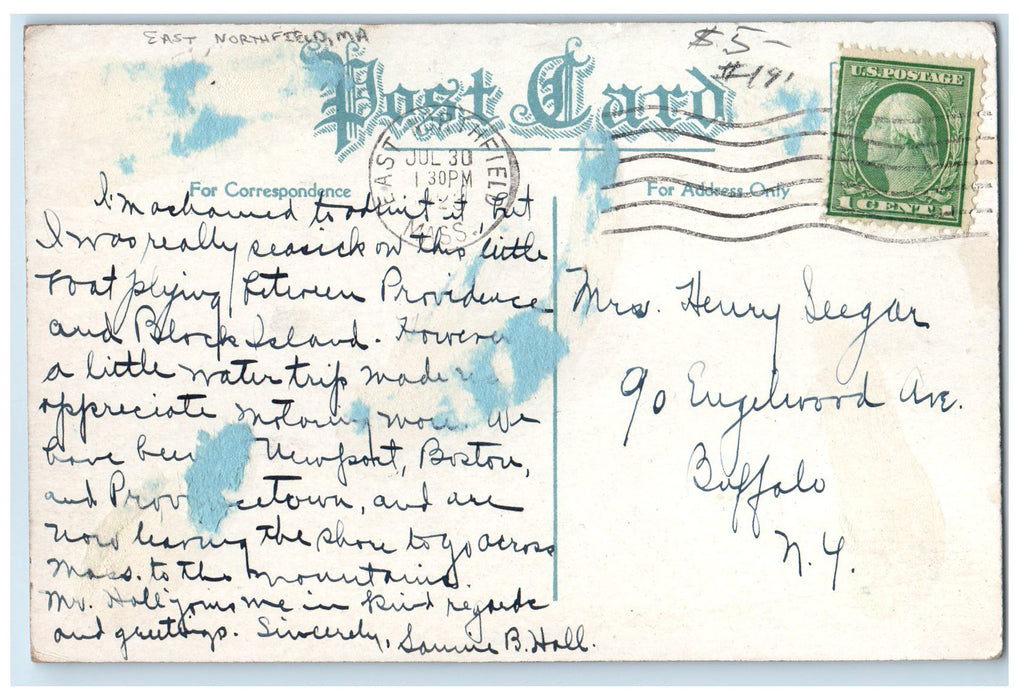 EAST NORTHFIELD, MA
$5-
#191
Post Card
U.S. POSTAGE
1 CENT 1
EAST NORTHFIELD
JUL 30
1 30PM
MASS.
For Correspondence
For Address Only
I'm ashamed to admit it, but
I was really seasick on this little
boat plying between Providence
and Block Island. However
a little water trip made
appreciate motoring more. We
have been Newport, Boston,
and Provincetown, and are
now leaving the shore to go across
Mass. to the mountains.
Mr. Hall joins me in kind regards
and greetings. Sincerely, B. Hall.
Mrs. Henry Seegar
90 Engelwood Ave.
Buffalo
N.Y.